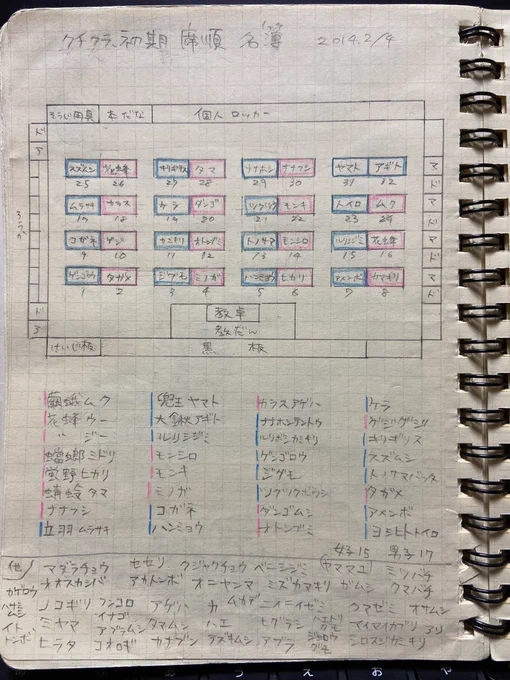 クチクラ、初期 席順 名簿 2014.2/4
そうじ用具 本だな 個人 ロッカー
ドア
ろうか
スズムシ 花蜂 キリギリス タマ ナナホシ ナナフシ ヤマト アギト マド
25 26 27 28 29 30 31 32
ムラサキ カラス ケラ ダンゴ ツクツク モンキ トイロ ムク
17 18 19 20 21 22 23 24
コガネ ゲジ カミキリ オトシブミ トノサマ モンシロ ルリシジミ 花蜂 マド
9 10 11 12 13 14 15 16
ゲンゴロウ タガメ ジグモ ミノガ ハンミョウ ヒカリ アメンボ カマキリ マド
1 2 3 4 5 6 7 8
ドア
教卓
教だん
けいじ板 黒 板
繭蛾ムク 兜王 ヤマト カラスアゲハー ケラ
花蜂 ウー 大鍬アギト ナナホシテントウ ゲジゲジ
〃 ジー ルリシジミ ルリボシカミキリ キリギリス
蟷螂 ミドリ モンシロ ゲンゴロウ スズムシ
蛍野ヒカリ モンキ ジグモ トノサマバッタ
蜻蛉 タマ ミノガ ツクツクボウシ タガメ
ナナフシ コガネ ダンゴムシ アメンボ
立羽 ムラサキ ハンミョウ オトシブミ ヨシヒトトイロ
女子15 男子17
他 マダラチョウ セセリ クジャクチョウ ベニシジミ ヤママユ ミツバチ
カゲロウ オオスカシバ アカトンボ オニヤンマ ミズカマキリ ガムシ クマバチ
ハサミムシ ノコギリ アゲハ カ ムカデ ニイニイゼミ クマゼミ オサムシ
イトトンボ ミヤマ イナゴ アブラムシ タマムシ ハエ ヒグラシ ハエトリグモ マイマイカブリ アリ
ヒラタ コオロギ カナブン アブラ ジョロウグモ シロスジカミキリ